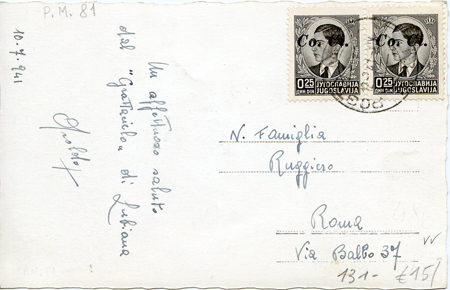 P.M. 81
10.7.941
Un affettuoso saluto
del "Grattacielo" di Lubiana
Co. Ci.
ЈУГОСЛАВИЈА
0.25
ДИН DIN
JUGOSLAVIJA
Co. Ci.
ЈУГОСЛАВИЈА
0.25
ДИН DIN
JUGOSLAVIJA
N. Famiglia
Ruggiero
Roma
Via Balbo 37
131- £15/